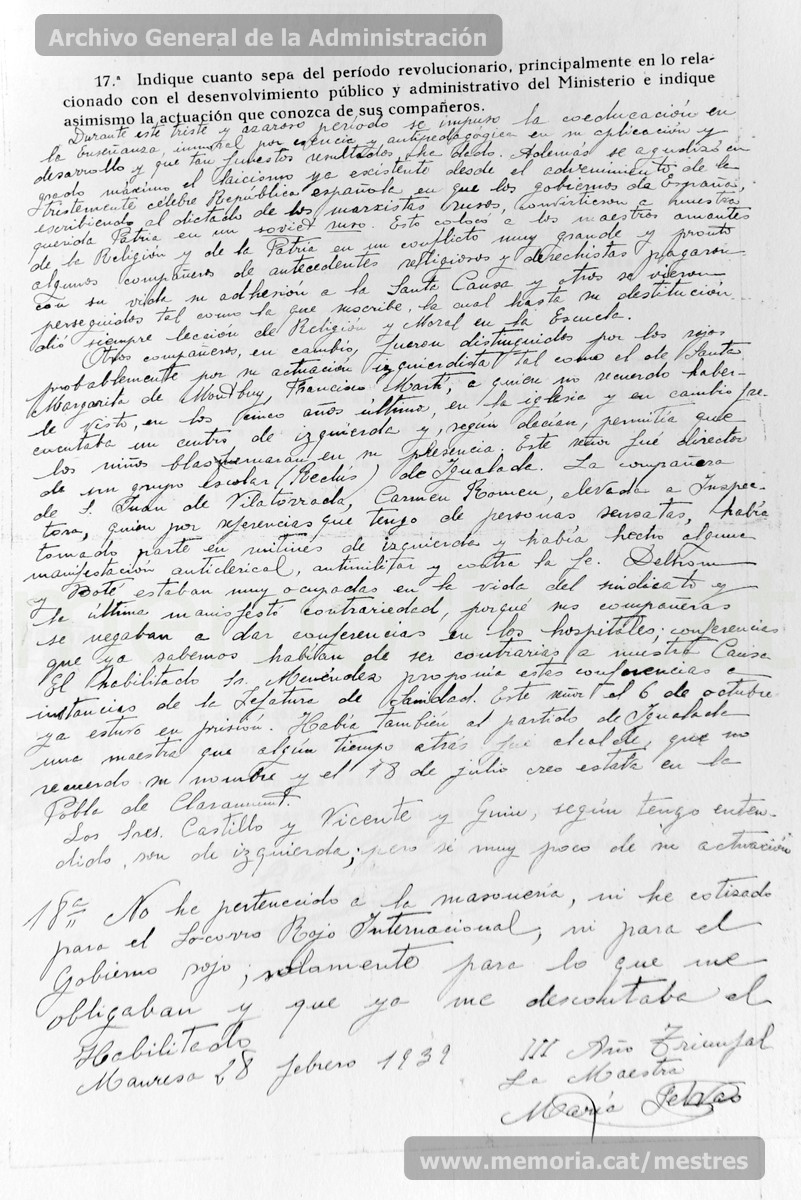 Archivo General de la Administración
17.ª Indique cuanto sepa del período revolucionario, principalmente en lo rela-
cionado con el desenvolvimiento público y administrativo del Ministerio e indique
asimismo la actuación que conozca de sus compañeros.
Durante este triste y azaroso período se impuso la coeducación en
la Enseñanza, inmoral por esencia y antipedagógica en su aplicación y
desarrollo y que tan funestos resultados ha dado. Además se agudizó en
grado máximo el laicismo ya existente desde el advenimiento de la
tristemente célebre República española en que los gobiernos de España,
escribiendo al dictado de los marxistas rusos, convirtieron a nuestra
querida Patria en un soviet ruso. Esto colocó a los maestros amantes
de la Religión y de la Patria en un conflicto muy grande y pronto
algunos compañeros de antecedentes religiosos y derechistas pagaron
con su vida su adhesión a la Santa Causa y otros se vieron
perseguidos tal como la que suscribe, la cual hasta su destitución
dió siempre lección de Religión y Moral en la Escuela.
Otros compañeros, en cambio, fueron distinguidos por los rojos
probablemente por su actuación izquierdista tal como el de Santa
Margarita de Montbuy, Francisco Martí, a quien no recuerdo haber-
le visto, en los cinco años últimos, en la iglesia y en cambio fre-
cuentaba un centro de izquierda y, según decían, permitía que
los niños blasfemaran en su presencia. Este señor fué director
de un grupo escolar (Reclús) de Igualada. La compañera
de S. Juan de Vilatorrada, Carmen Romeu, elevada a Inspec-
tora, quien por referencias que tengo de personas sensatas, había
tomado parte en mitines de izquierda y había hecho alguna
manifestación anticlerical, antimilitar y contra la fe.
y Boté estaban muy ocupadas en la vida del sindicato y
la última manifestó contrariedad, porqué sus compañeras
se negaban a dar conferencias en los hospitales; conferencias
que ya sabemos habían de ser contrarias a nuestra Causa
El habilitado Sr. Menéndez proponía estas conferencias a
instancias de la Jefatura de Sanidad. Este señor el 6 de octubre
ya estuvo en prisión. Había también al partido de Igualada
una maestra que algún tiempo atrás fué alcalde, que no
recuerdo su nombre y el 18 de julio creo estaba en la
Pobla de Claramunt.
Los Sres. Castillo y Vicente y Guiu, según tengo enten-
dido, son de izquierda; pero sé muy poco de su actuación
18ª No he pertenecido a la masonería, ni he cotizado
para el Socorro Rojo Internacional, ni para el
Gobierno rojo; solamente para lo que me
obligaban y que ya me descontaba el
Habilitado
Manresa 28 febrero 1939 III Año Triunfal
La Maestra
María
www.memoria.cat/mestres